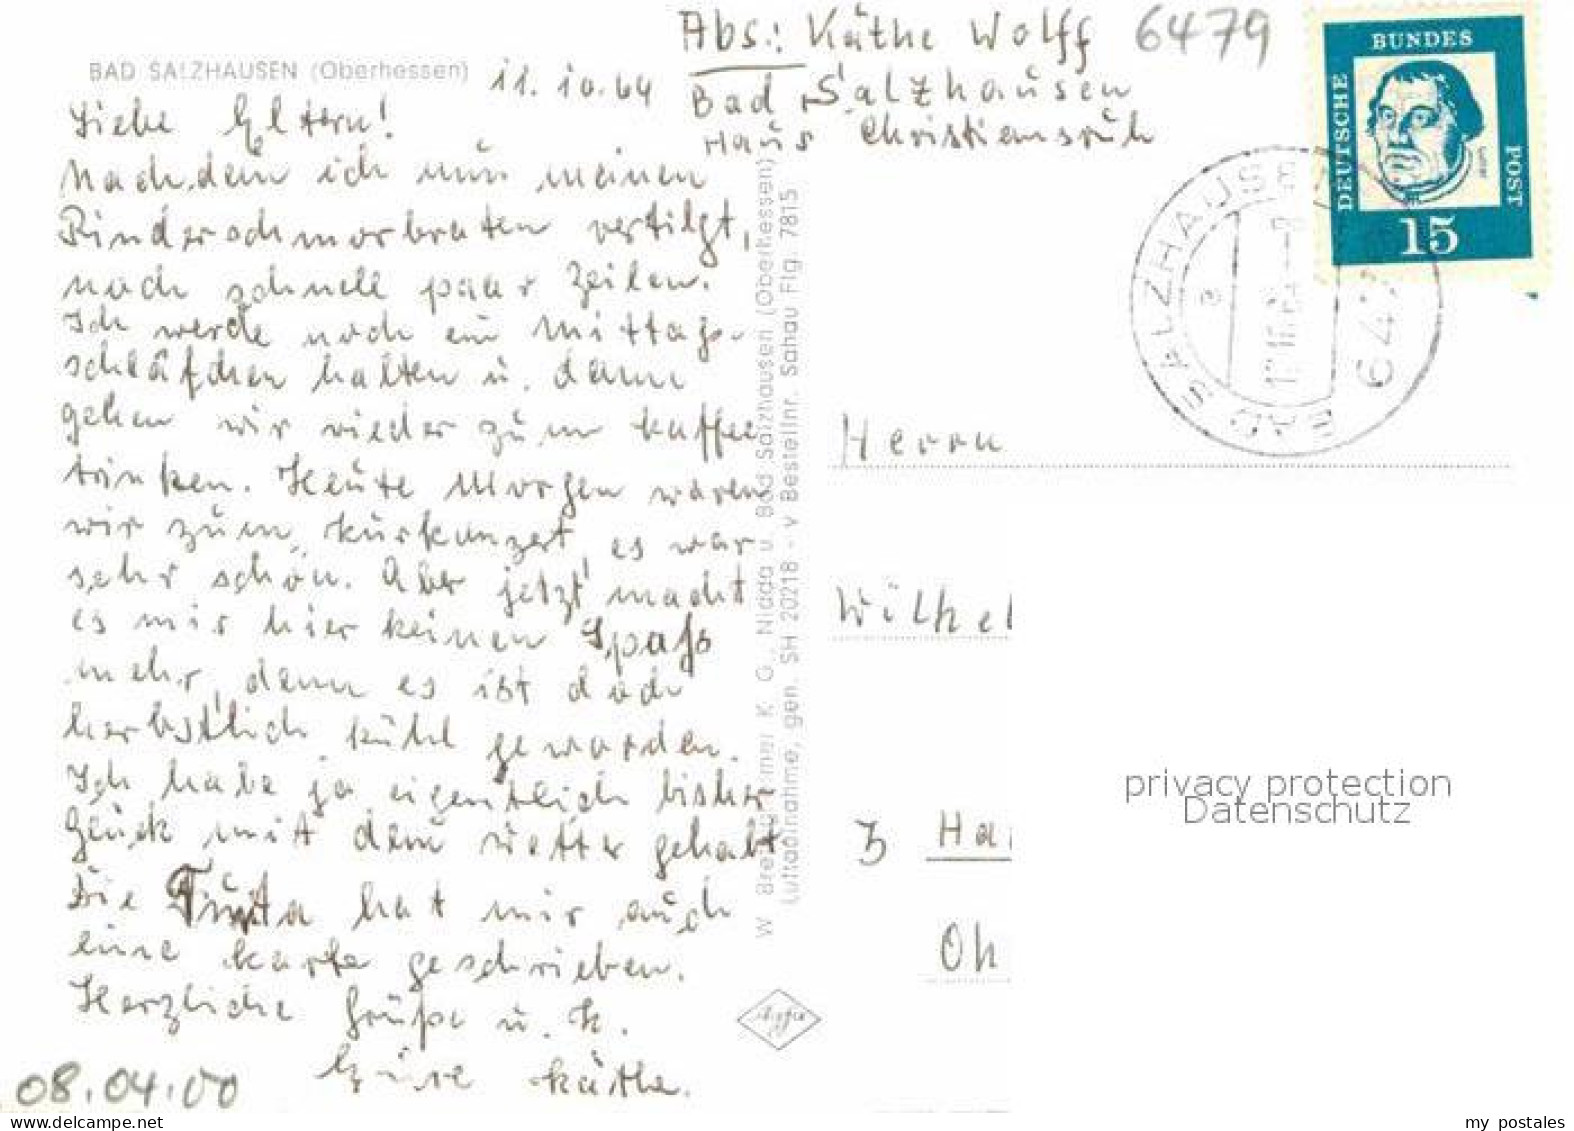 BAD SALZHAUSEN (Oberhessen)
11.10.64
Abs.: Käthe Wolff
Bad Salzhausen
Haus Christiansruh
6479
Liebe Eltern!
Nachdem ich nun meinen
Rinderschmorbraten vertilgt,
noch schnell paar Zeilen.
Ich werde noch ein Mittags-
schläfchen halten u. dann
gehen wir wieder zum Kaffee
trinken. Heute Morgen waren
wir zum Kurkonzert, es war
sehr schön. Aber jetzt macht
es mir hier keinen Spaß
mehr, denn es ist doch
herbstlich kühl geworden.
Ich habe ja eigentlich bisher
Glück mit dem Wetter gehabt
Die hat mir auch
eine Karte geschrieben.
Herzliche Grüße u. K.
Eure Käthe.
08.04.00
W. K. G., Nidda u. Bad Salzhausen (Oberhessen)
Luftaufnahme, gen. SH 20218 - V Bestellnr. Sahau Flg. 7815
DEUTSCHE
BUNDES
POST
Luther
15
BAD SALZHAUSEN
6479
a
Herrn
Wilhel
3 Ha
Oh
privacy protection
Datenschutz
www.delcampe.net
my_postales